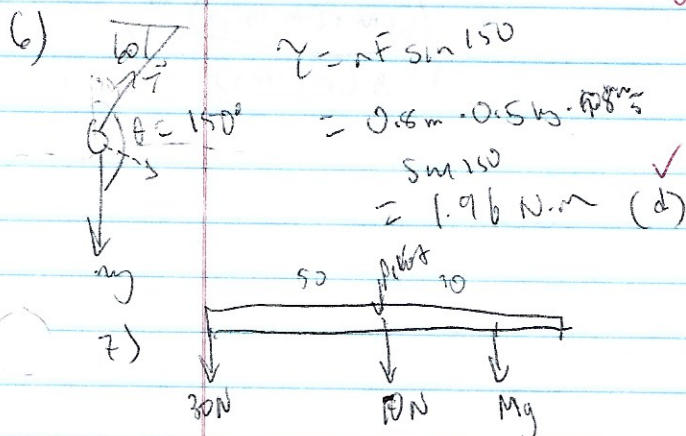 6)
60
T
θ = 150°
mg
τ = rF sin 150
= 0.8m · 0.5 kg ·
sin 150
= 1.96 N·m (d)
7)
50 pivot
30N 10N Mg